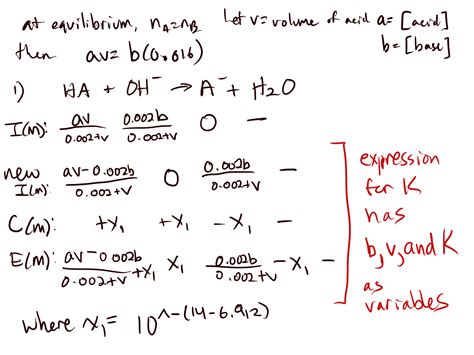 at equilibrium, nA=nB Let v=volume of acid a=[acid]
b=[base]
then av=b(0.016)
1) HA + OH⁻ → A⁻ + H2O
I(m): av/0.002+v 0.002b/0.002+v 0 —
new I(m): av-0.002b/0.002+v 0 0.002b/0.002+v —
C(m): +x₁ +x₁ -x₁ —
E(m): av-0.002b/0.002+v +x₁ x₁ 0.002b/0.002+v -x₁ —
where x₁= 10^-(14-6.912)
expression
for K
has
b, v, and K
as
variables